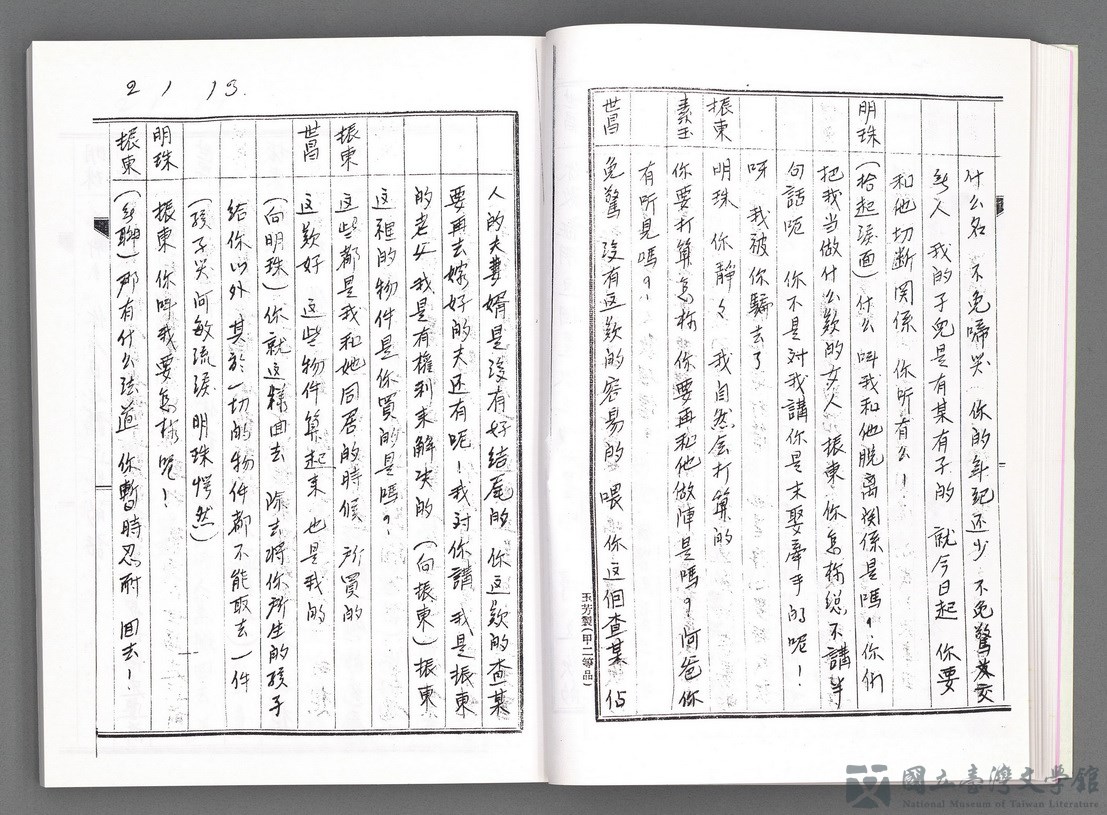 什么名 不免啼哭 你的年紀还少 不免驚
人 我的子兒是有某有子的 就今日起 你要
和他切断関係 你所有么！
明珠 (拾起淚面) 什么 叫我和他脱离関係是嗎？你们
把我当做什么欵的女人 振東 你怎称総不講半
句話呃 你不是对我講你是未娶牽手的呃！
呀 我被你騙去了
振東 明珠 你静々 我自然会打算的
素玉 你要打算怎称 你要再和他做陣是嗎？阿爸你
有听見嗎？
世昌 免驚 没有这欵的容易的 喂 你这個查某 佔
人的夫壻是没有好结尾的 你这欵的查某
要再去嫁好的夫还有呃！我对你講 我是振東
的老父 我是有權利来解决的 (向振東) 振東
这裡的物件是你買的是嗎？
振東 这些都是我和她同居的時候 所買的
世昌 这欵好 这些物件算起来 也是我的
(向明珠) 你就这様回去 除去将你所生的孩子
给你以外 其於一切的物件都不能取去一件
(孩子哭 阿敏流淚 明珠愕然)
明珠 振東 你叫我要怎様呃！
振東 那有什么法道 你暫時忍耐 回去！
2 1 13.
玉芳製(甲二等品)
國立臺灣文學館
National Museum of Taiwan Literature